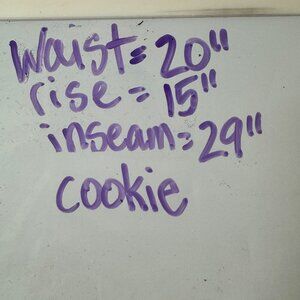 Waist = 20"
rise = 15"
inseam = 29"
cookie